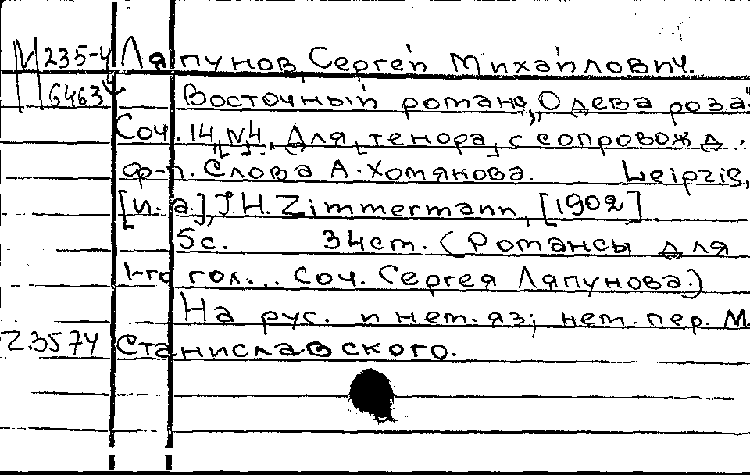 М 235-4 Ляпунов, Сергей Михайлович.
6463 Восточный романс, "О дева роза".
Соч. 14, №4. Для тенора с сопровожд.
ф-п. Слова А. Хомякова. Leipzig,
[и. а.], J. H. Zimmermann, [1902]
5с. 34см. (Романсы для
1-го гол... Соч. Сергея Ляпунова.)
На рус. и нем. яз; нем. пер. М.
23574 Станиславского.